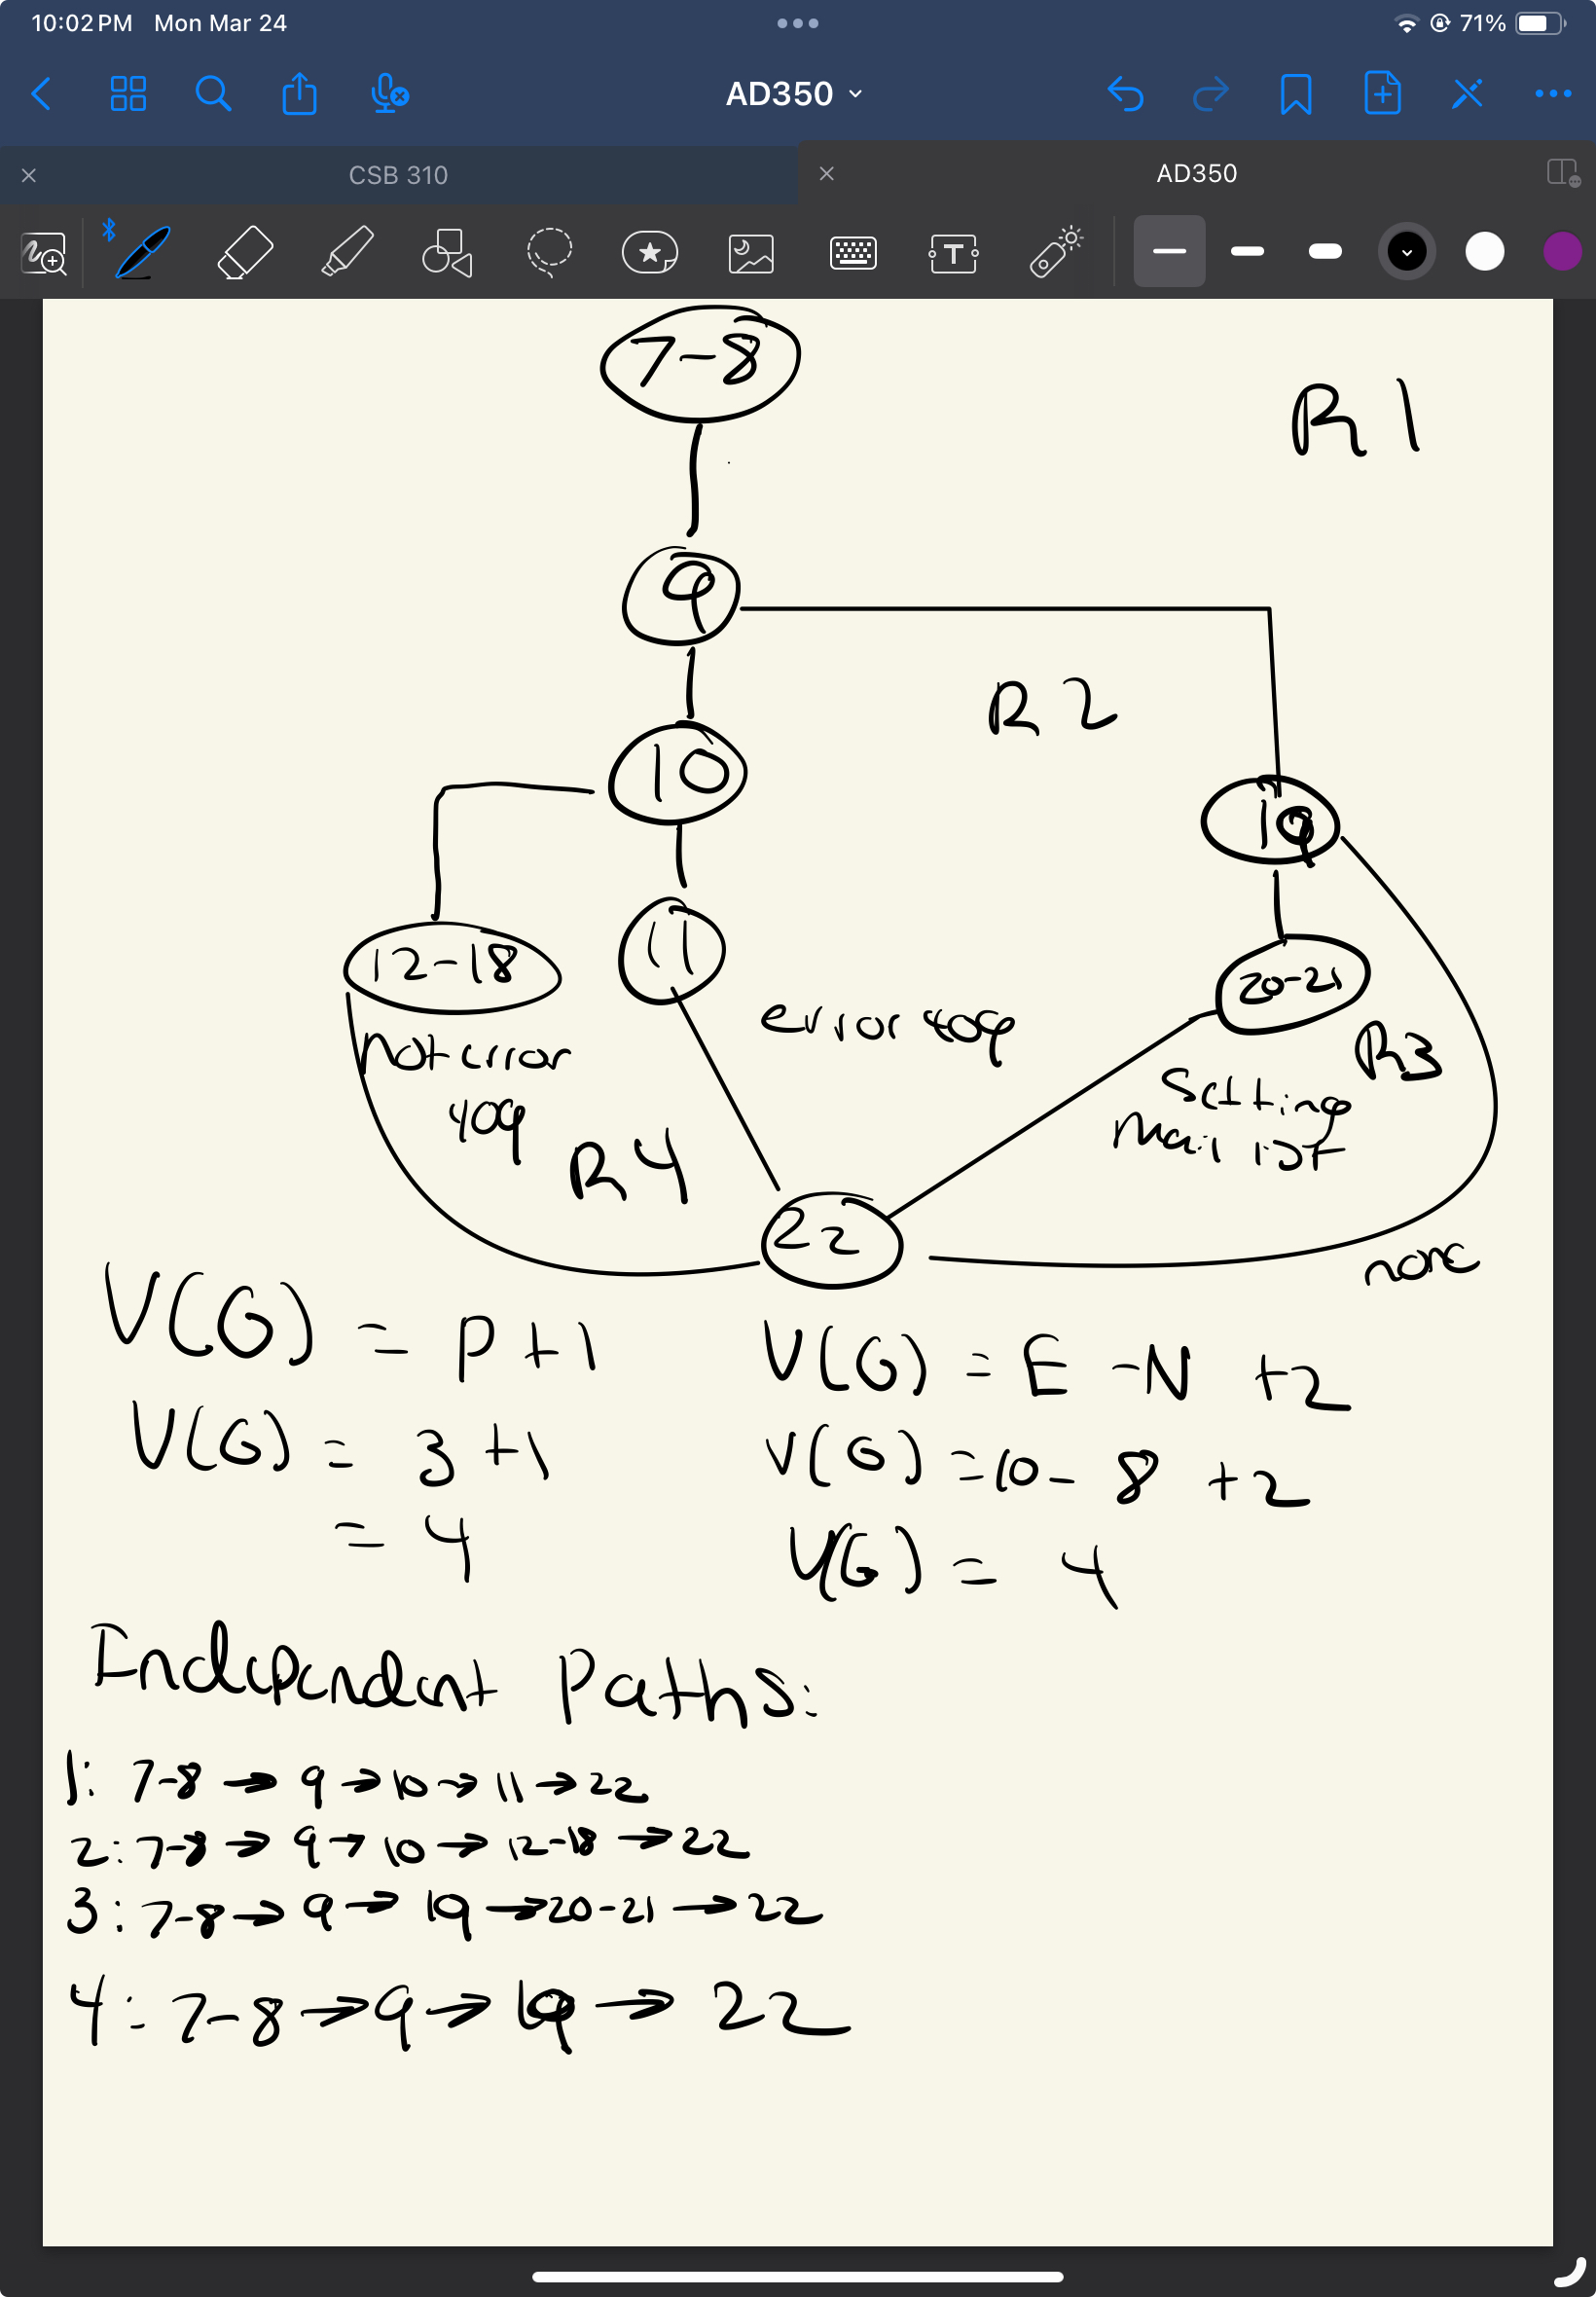 10:02 PM Mon Mar 24
71%
AD350
CSB 310
AD350
T
7-8
R1
9
R2
10
19
12-18
11
20-21
error 409
Not error
409
R3
Setting
Mail list
R4
22
none
V(G) = P+1
V(G) = E-N+2
V(G) = 3+1
V(G) = 10-8+2
= 4
V(G) = 4
Independent Paths:
1: 7-8 → 9 → 10 → 11 → 22
2: 7-8 → 9 → 10 → 12-18 → 22
3: 7-8 → 9 → 19 → 20-21 → 22
4: 7-8 → 9 → 19 → 22